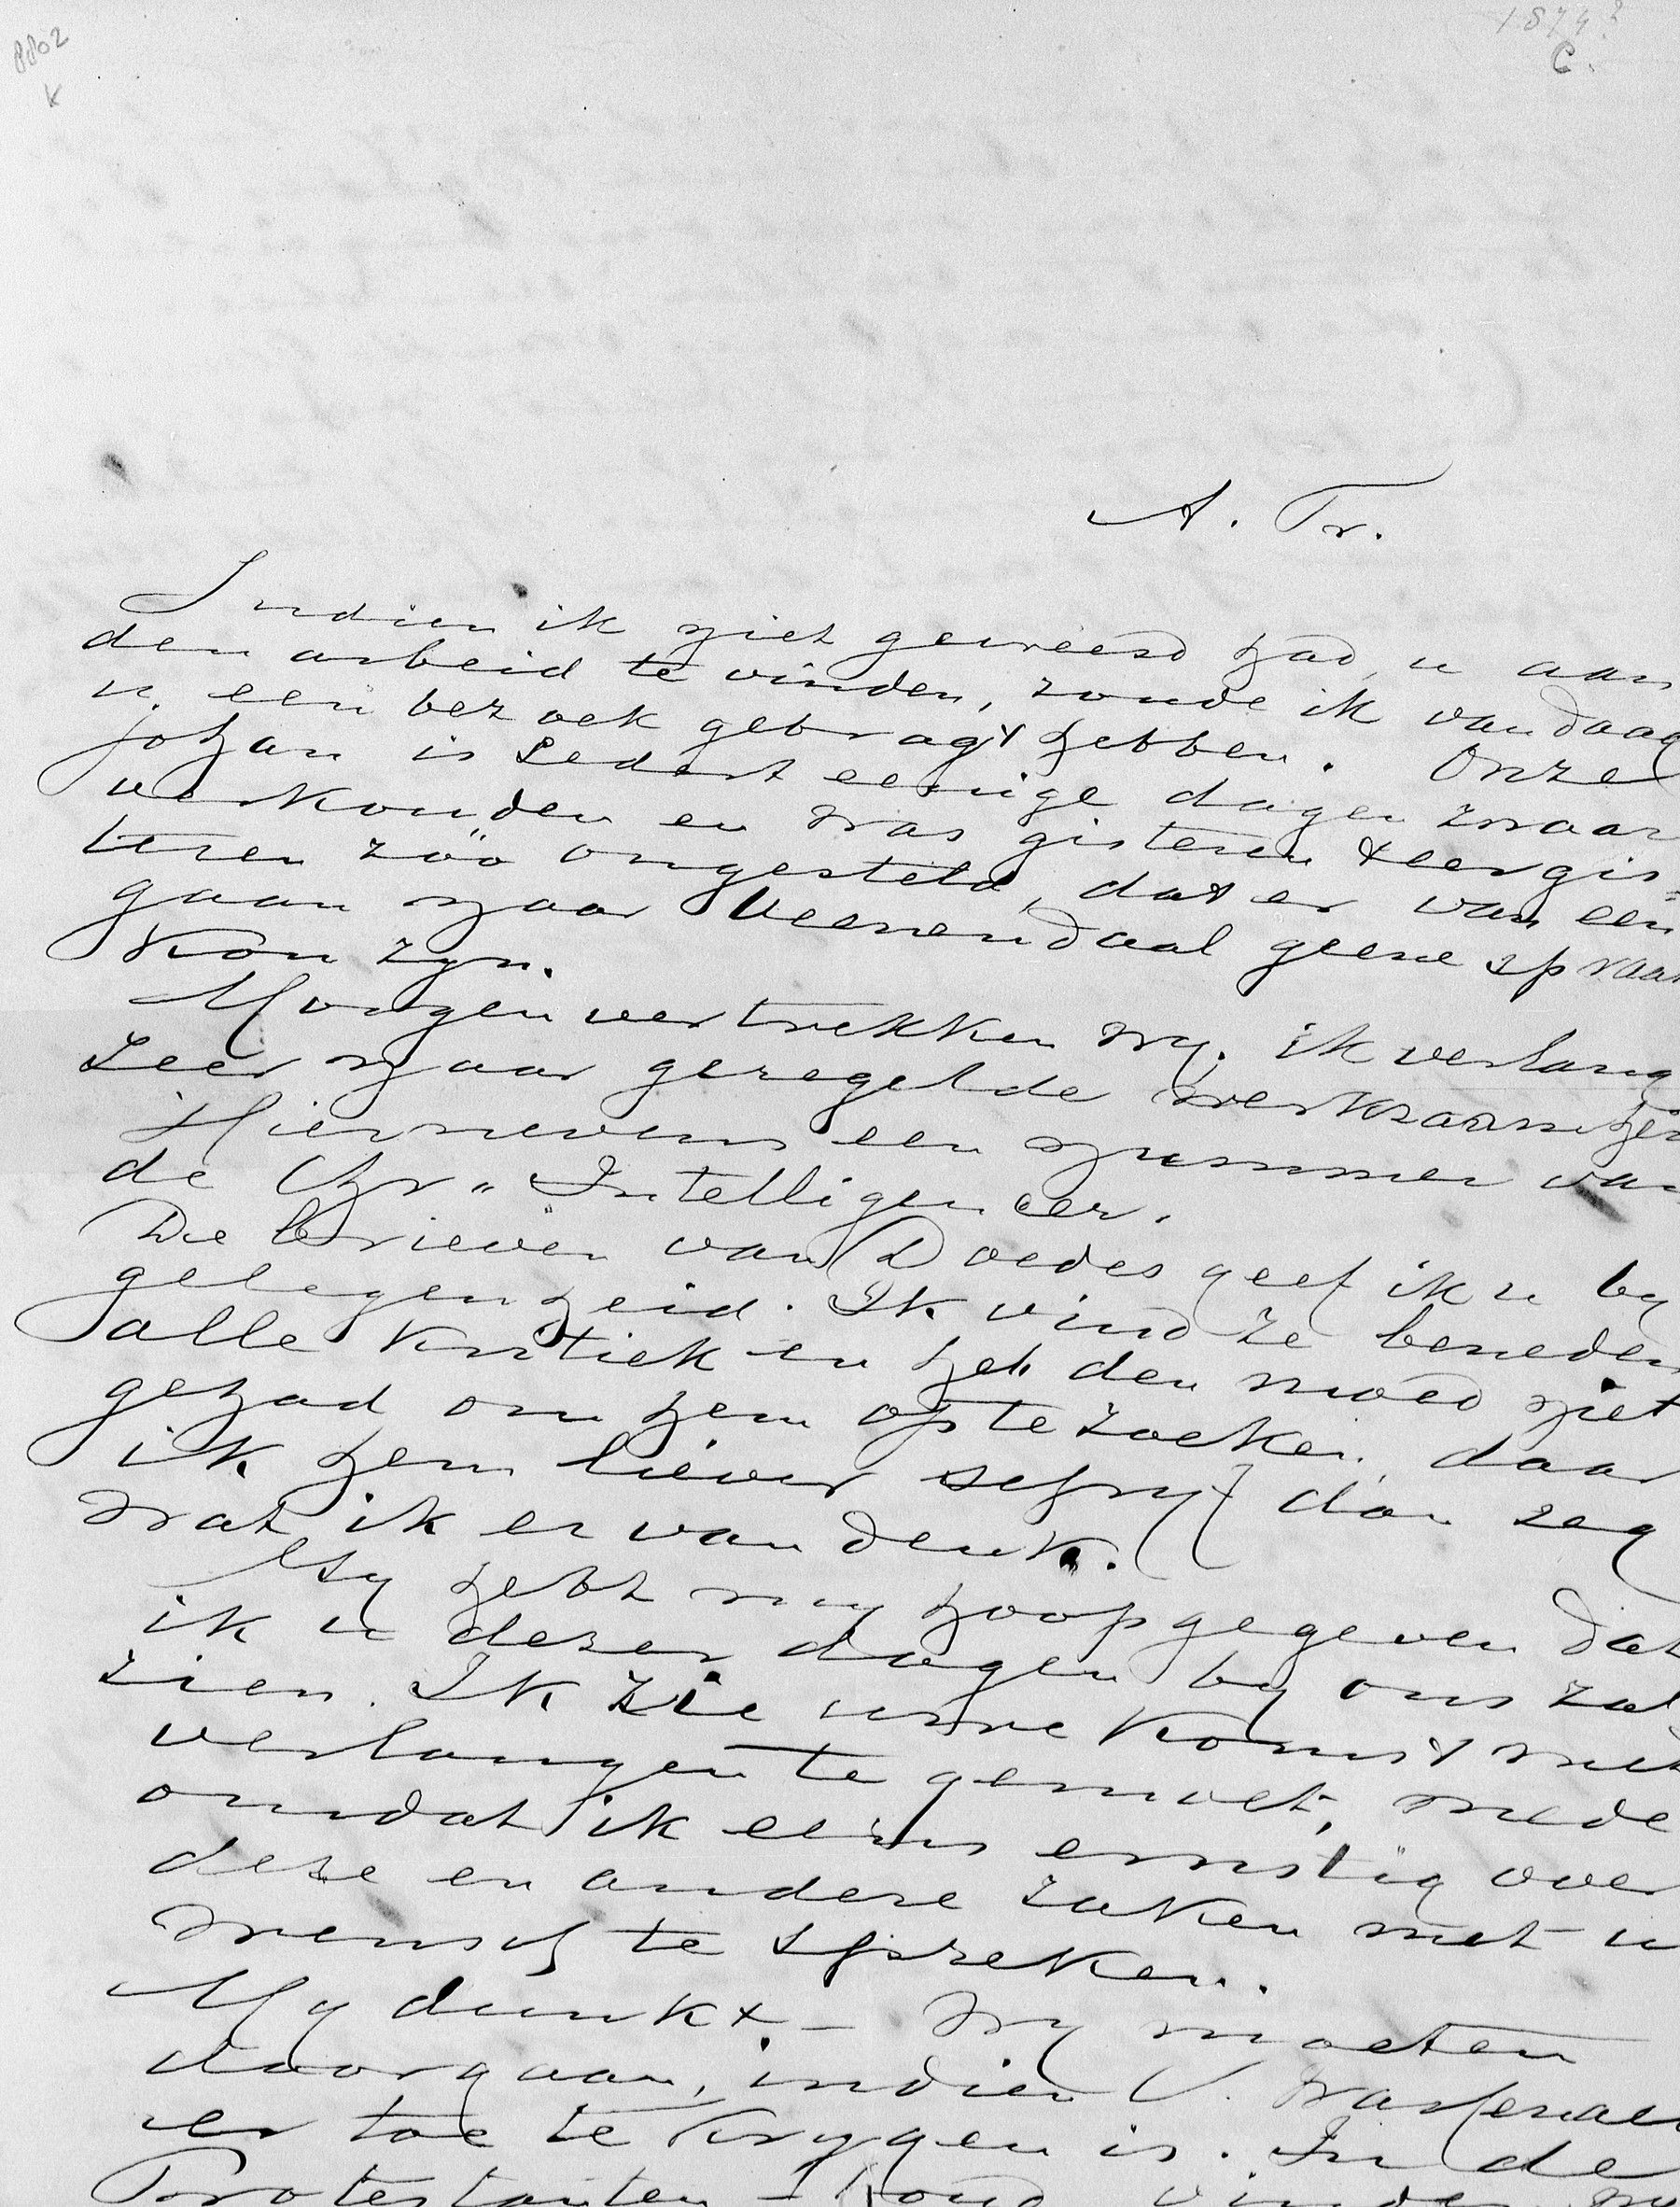 8802
K
1874?
C.
A. Tr.
Indien ik niet gevreesd had u aan
den arbeid te vinden, zoude ik vandaag
u een bezoek gebragt hebben. Onze
Johan is sedert eenige dagen zwaar
verkouden en was gisteren & eergis=
teren zóó ongesteld, dat er van een
gaan naar Veenendaal geene spraak
kon zyn.
Morgen vertrekken wy. ik verlang
zeer naar geregelde werkzaamhe
Hiernevens een nummer van
de Chr. Intelligencer.
De brieven van Doedes geef ik u by
gelegenheid. Ik vind ze beneden
alle kritiek en heb den moed niet
gehad om hem op te zoeken, daar
ik hem liever schryf dan zeg
wat ik er van denk.
Gy hebt my hoop gegeven dat
ik u dezer dagen by ons zal
zien. Ik zie uwe komst met
verlangen te gemoet, mede
omdat ik eens ernstig over
deze en andere zaken met u
wensch te spreken.
My dunkt – wy moeten
doorgaan, indien V. Wassenaer
er toe te krygen is. In de
Protestanten-bond vinden